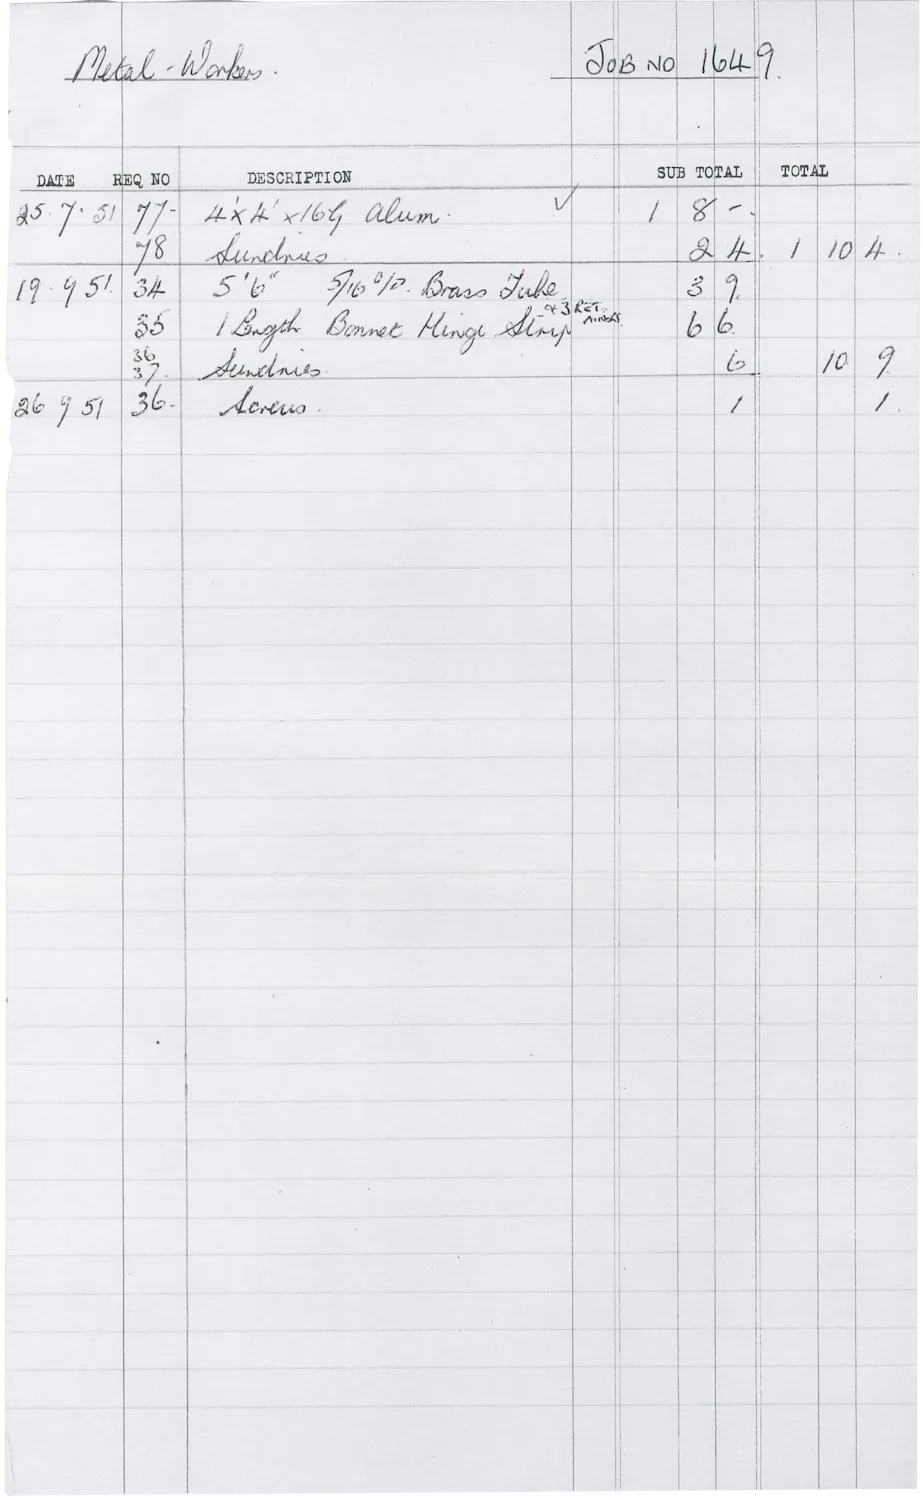 Metal-Workers. JOB NO 1649.
DATE REQ NO DESCRIPTION SUB TOTAL TOTAL
25.7.51 77- 4'x4'x16G Alum. ✓ 1 8 -.
78 Sundries 2 4. 1 10 4.
19.9 51. 34 5'6" 5/16 O/D. Brass Tube 3 9.
35 1 Length Bonnet Hinge Strip & 3 RET- 6 6.
AINERS
36 Sundries. 6 10 9
37.
26 9 51 36- Screws. 1 1.